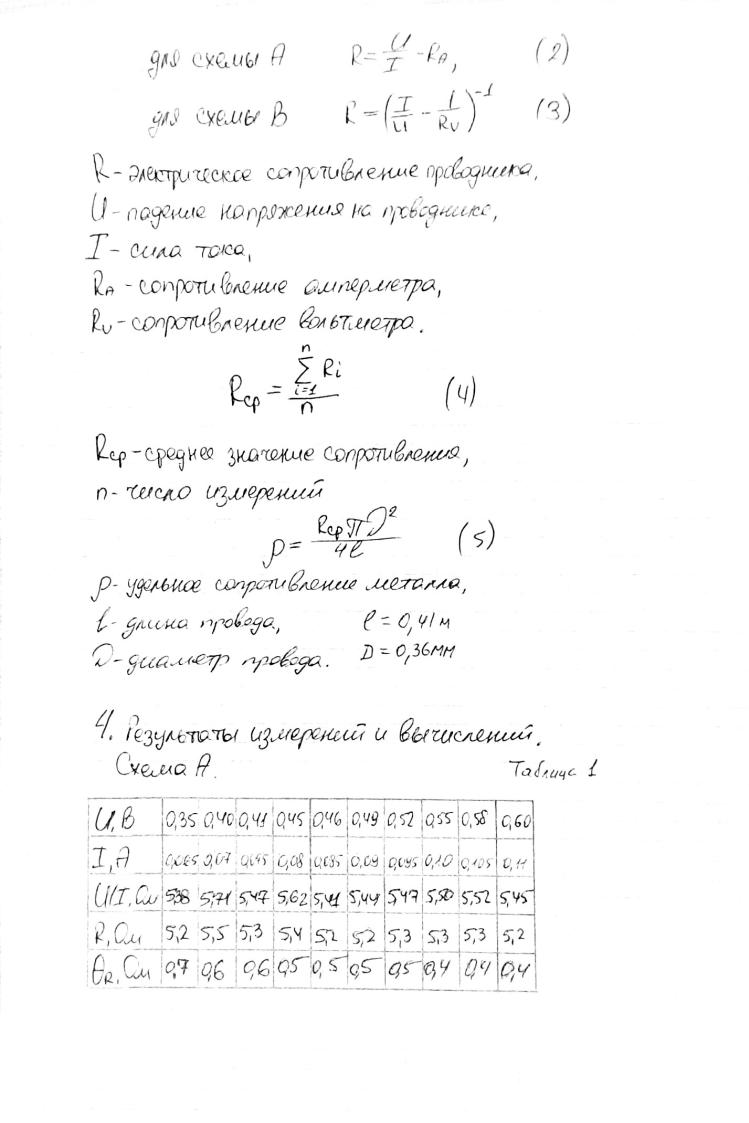 для схемы A R=U/I-R_A, (2)
для схемы B R=(I/U - 1/R_V)^-1 (3)
R-электрическое сопротивление проводника,
U-падение напряжения на проводнике,
I-сила тока,
R_A-сопротивление амперметра,
R_V-сопротивление вольтметра.
R_ср = (∑_{i=1}^{n} R_i)/n (4)
R_ср-среднее значение сопротивления,
n-число измерений
ρ = (R_ср π D²)/(4l) (5)
ρ-удельное сопротивление металла,
l-длина провода, l=0,41м
D-диаметр провода. D=0,36мм
4. Результаты измерений и вычислений.
Схема A. Таблица 1
U,В 0,35 0,40 0,41 0,45 0,46 0,49 0,52 0,55 0,58 0,60
I,А 0,065 0,07 0,075 0,08 0,085 0,09 0,095 0,10 0,105 0,11
U/I,Ом 5,38 5,71 5,47 5,62 5,41 5,44 5,47 5,50 5,52 5,45
R,Ом 5,2 5,5 5,3 5,4 5,2 5,2 5,3 5,3 5,3 5,2
θ_R,Ом 0,7 0,6 0,6 0,5 0,5 0,5 0,5 0,4 0,4 0,4